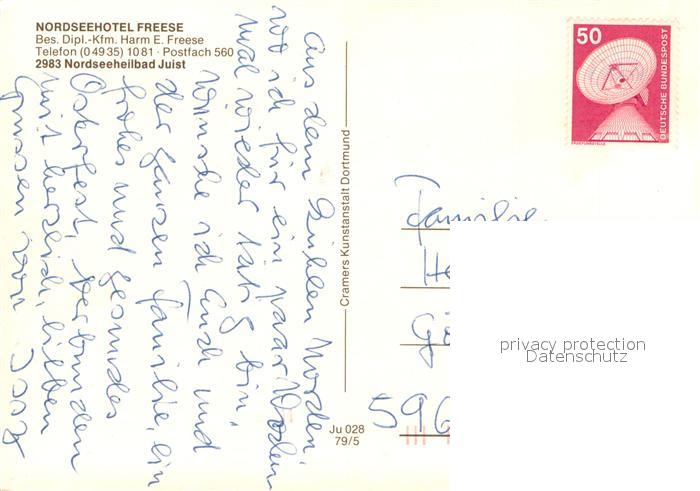 NORDSEEHOTEL FREESE
Bes. Dipl.-Kfm. Harm E. Freese
Telefon (0 49 35) 10 81 · Postfach 560
2983 Nordseeheilbad Juist
Aus dem kühlen Norden,
wo ich für ein paar Wochen
mal wieder tätig bin,
wünsche ich Euch und
der ganzen Familie, ein
frohes und gesundes
Osterfest, verbunden
mit herzlich, lieben
Grüssen von
Cramers Kunstanstalt Dortmund
Ju 028
79/5
50
DEUTSCHE BUNDESPOST
ERDEFUNKSTELLE
Familie
He
Gö
596
privacy protection
Datenschutz